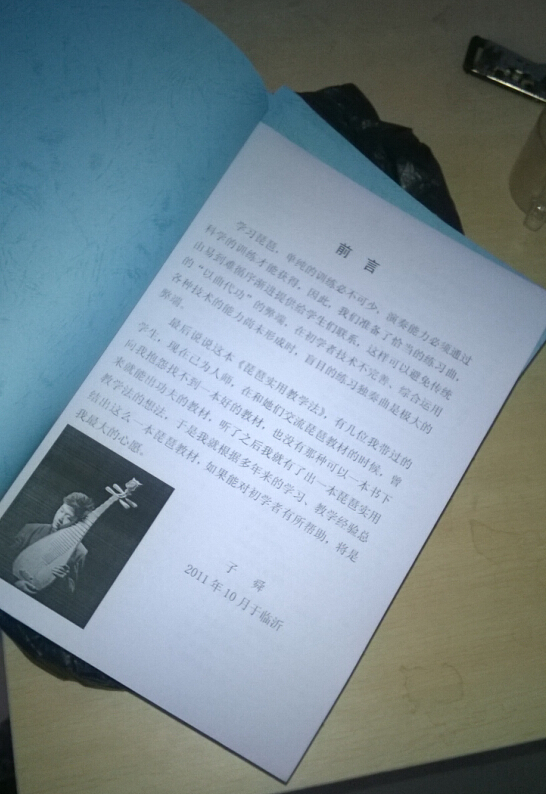 前言
学习琵琶，单纯的训练必不可少，演奏能力必须通过
科学的训练才能获得。因此，我们准备了恰当的练习曲，
由易到难循序渐进提供给学生们联系，这样可以避免传统
的“以曲代功”的弊端。在初学者技术不完善、综合运用
各种技术的能力尚未形成时，盲目的练习独奏曲是极大的
弊端。
最后说说这本《琵琶实用教学法》。有几位我带过的
学生，现在已为人师，在和她们交流琵琶教材的时候，曾
向我抱怨找不到一本好的教材，也没有那种可以一本书下
来就能出功夫的教材，听了之后我就有了出一本琵琶实用
教学法的想法。于是我就根据多年来的学习、教学经验总
结出这么一本琵琶教材，如果能对初学者有所帮助，将是
我最大的心愿。
子舜
2011年10月于临沂